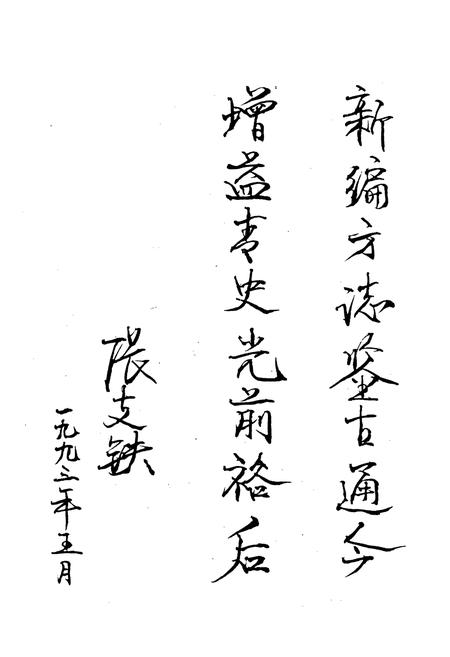 新编方志鉴古通今
增益青史光前裕后
张支铁
一九九三年五月